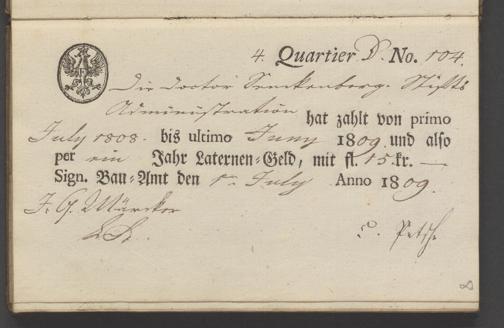 4. Quartier D. No. 104.
Die Doctor Senckenberg. Stifts
Administration hat zahlt von primo
July 1808. bis ultimo Juny 1809 und also
per ein Jahr Laternen-Geld, mit fl. 15 kr. —
Sign. Bau-Amt den 1n July Anno 1809.
J. G. Märcker